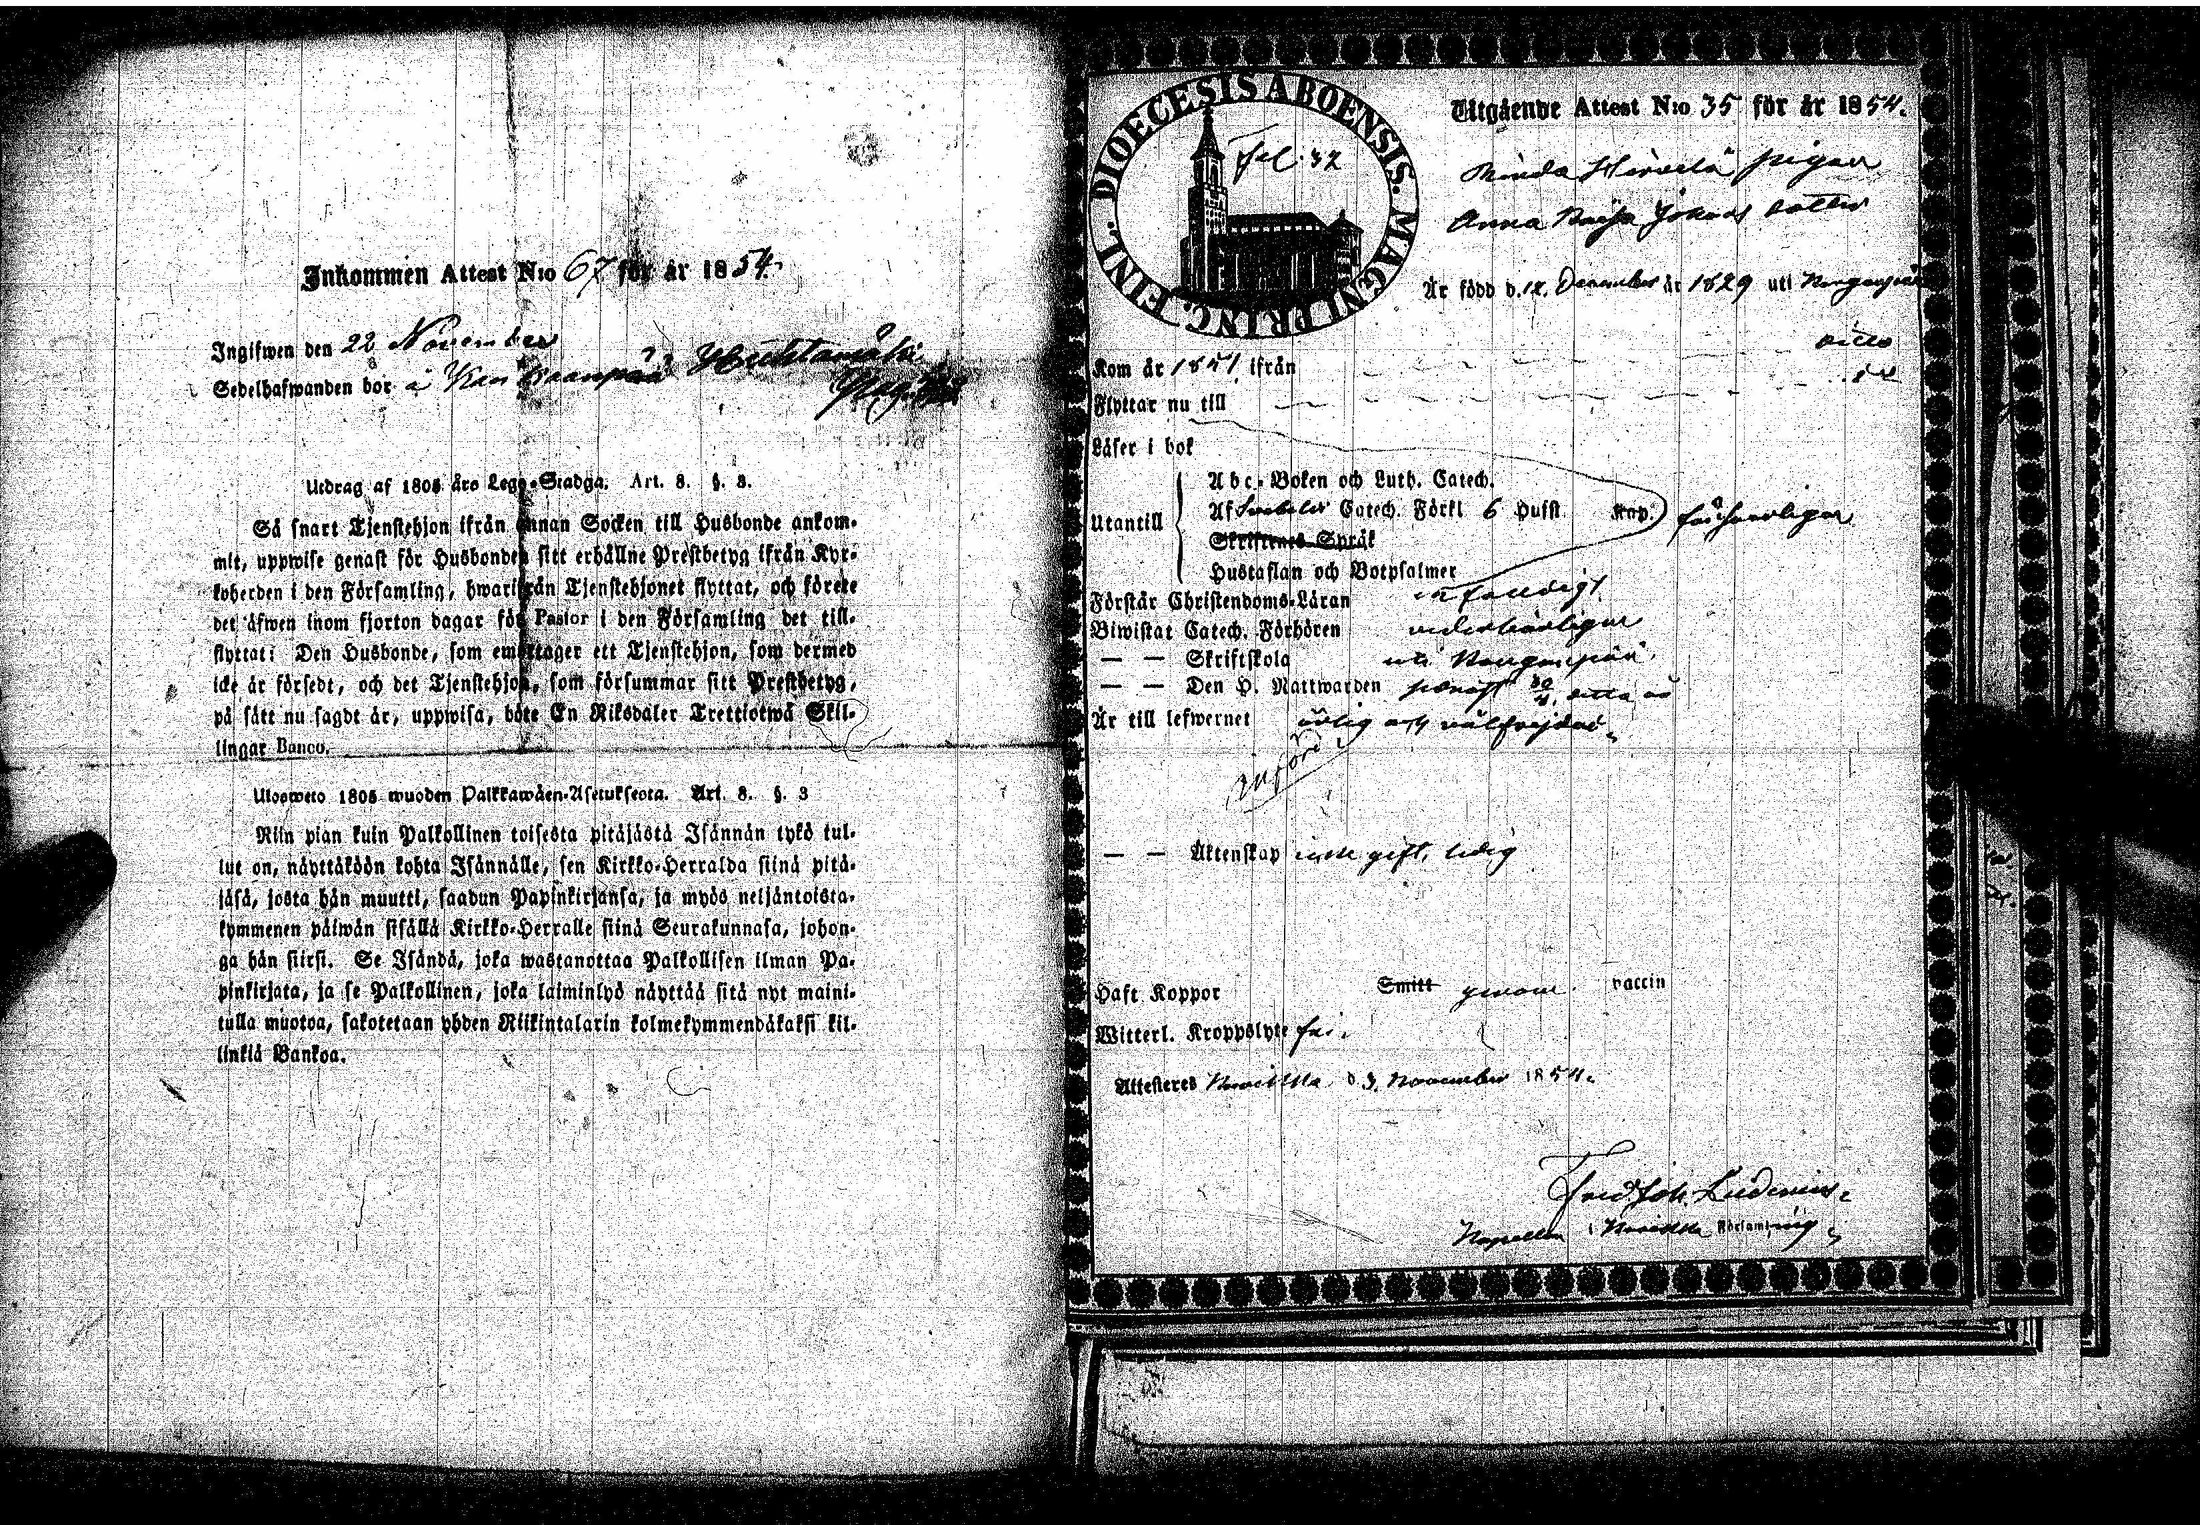 Inkommen Attest N:o 67 för år 1854.
Ingifwen den 22 November
Sedelhafwanden bor å Kankaanpää Huhtamäki
Utdrag af 1805 års Lego-Stadga. Art. 8. §. 3.
Så snart Tjenstehjon ifrån annan Socken till Husbonde ankom-
mit, uppwise genast för Husbonden sitt erhållne Prestbetyg ifrån Kyr-
koherden i den Församling, hwarifrån Tjenstehjonet flyttat, och förete
det äfwen inom fjorton dagar för Pastor i den Församling det till-
flyttat: Den Husbonde, som emottager ett Tjenstehjon, som dermed
icke är försedt, och det Tjenstehjon, som försummar sitt Prestbetyg,
på sätt nu sagdt är, uppwisa, böte En Riksdaler Trettiotwå Skil-
lingar Banco.
Ulosweto 1805 wuoden Palkkawäen-Asetuksesta. Art. 8. §. 3
Niin pian kuin Palkollinen toisesta pitäjästä Isännän tykö tul-
lut on, näyttäköön kohta Isännälle, sen Kirkko-Herralda siinä pitä-
jäsä, josta hän muutti, saadun Papinkirjansa, ja myös neljäntoista-
kymmenen päiwän sisällä Kirkko-Herralle siinä Seurakunnasa, johon-
ga hän siirsi. Se Isändä, joka wastanottaa Palkollisen ilman Pa-
pinkirjata, ja se Palkollinen, joka laiminlyö näyttää sitä nyt maini-
tulla muotoa, sakotetaan yhden Riikintalarin kolmekymmendäkaksi kil-
linkiä Bankoa.
DIOECESIS ABOENSIS. MAGNI PRINC. FINL.
Fol. 32
Utgående Attest N:o 35 för år 1854.
Hirvelä pigan
Anna Johans dotter
Är född d. 12. December år 1829 uti
ditto
Kom år 1851 ifrån
Flyttar nu till
Läser i bok
Abc-Boken och Luth. Catech.
Utantill Af Svebelii Catech. Förkl 6 Hufst. Kap.
Skriftenes Språk
Hustaflan och Botpsalmer
Förstår Christendoms-Läran
Biwistat Catech. Förhören vederbörligen
— — Skriftskola uti
— — Den H. Nattwarden senast ditto år
Är till lefwernet ärlig och välfrejdad.
införd
— — Äktenskap icke gift, ledig
Haft Koppor Smitt genom vaccin
Witterl. Kroppslyte fri.
Attesteres d. 3. November 1854.
Kapellan i Församling